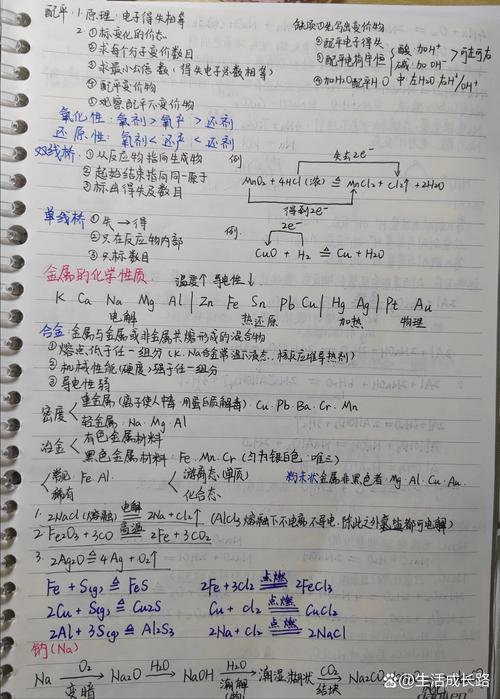 配平. 1.原理: 电子得失相等
2. ①标变化的价态
②求每个分子变价数目
③求最小公倍数 (得失电子总数相等)
④配平变价物
⑤观察配平不变价物
缺项①先写出变价物
②配平电子得失
③配平电荷守恒 酸: 加H⁺ 碱: 加OH⁻ >可左可右
④加H₂O配平H 中: 左H₂O右H⁺/OH⁻
氧化性: 氧剂>氧产>还剂
还原性: 氧剂<还产<还剂
双线桥 ①从反应物指向生成物
②起始结束指向同一原子
③标出得失及数目
例
失去2e⁻
MnO₂ + 4HCl(浓) ≜ MnCl₂ + Cl₂↑ + 2H₂O
得到2e⁻
单线桥 ①失→得
②只在反应物内部
③只标数目
例.
2e⁻
CuO + H₂ ≜ Cu + H₂O
金属的化学性质 温度↑ 导电性↓
K Ca Na Mg Al | Zn Fe Sn Pb Cu | Hg Ag | Pt Au
电解 热还原 加热 物理
合金 金属与金属或非金属共熔形成的混合物
①熔点低于任一组分 (K.Na合金常温下液态、核反应堆导热剂)
②机械性能(硬度)强于任一组分
③导电性弱
密度 重金属 (离子使人中毒 用蛋白质解毒): Cu·Pb·Ba·Cr·Mn
轻金属: Na·Mg·Al
冶金 有色金属材料
黑色金属材料: Fe·Mn·Cr (均为银白色 唯三)
常见 Fe.Al. 游离态(单质) 粉末状金属非黑色者: Mg Al Cu Au
稀有 化合态
1. 2NaCl(熔融) 电解 2Na + Cl₂↑ (AlCl₃熔融下不电离不导电,除此之外氯盐都可电解)
2. Fe₂O₃ + 3CO 高温 2Fe + 3CO₂
3. 2Ag₂O ≜ 4Ag + O₂↑
Fe + S(g) ≜ FeS 2Fe + 3Cl₂ 点燃 2FeCl₃
2Cu + S(g) ≜ Cu₂S Cu + Cl₂ 点燃 CuCl₂
2Al + 3S(g) ≜ Al₂S₃ 2Na + Cl₂ 点燃 2NaCl
钠(Na)
Na O₂ 变暗 Na₂O H₂O NaOH H₂O 潮解 潮湿糊状 CO₂ 结块 Na₂CO₃
@生活成长路